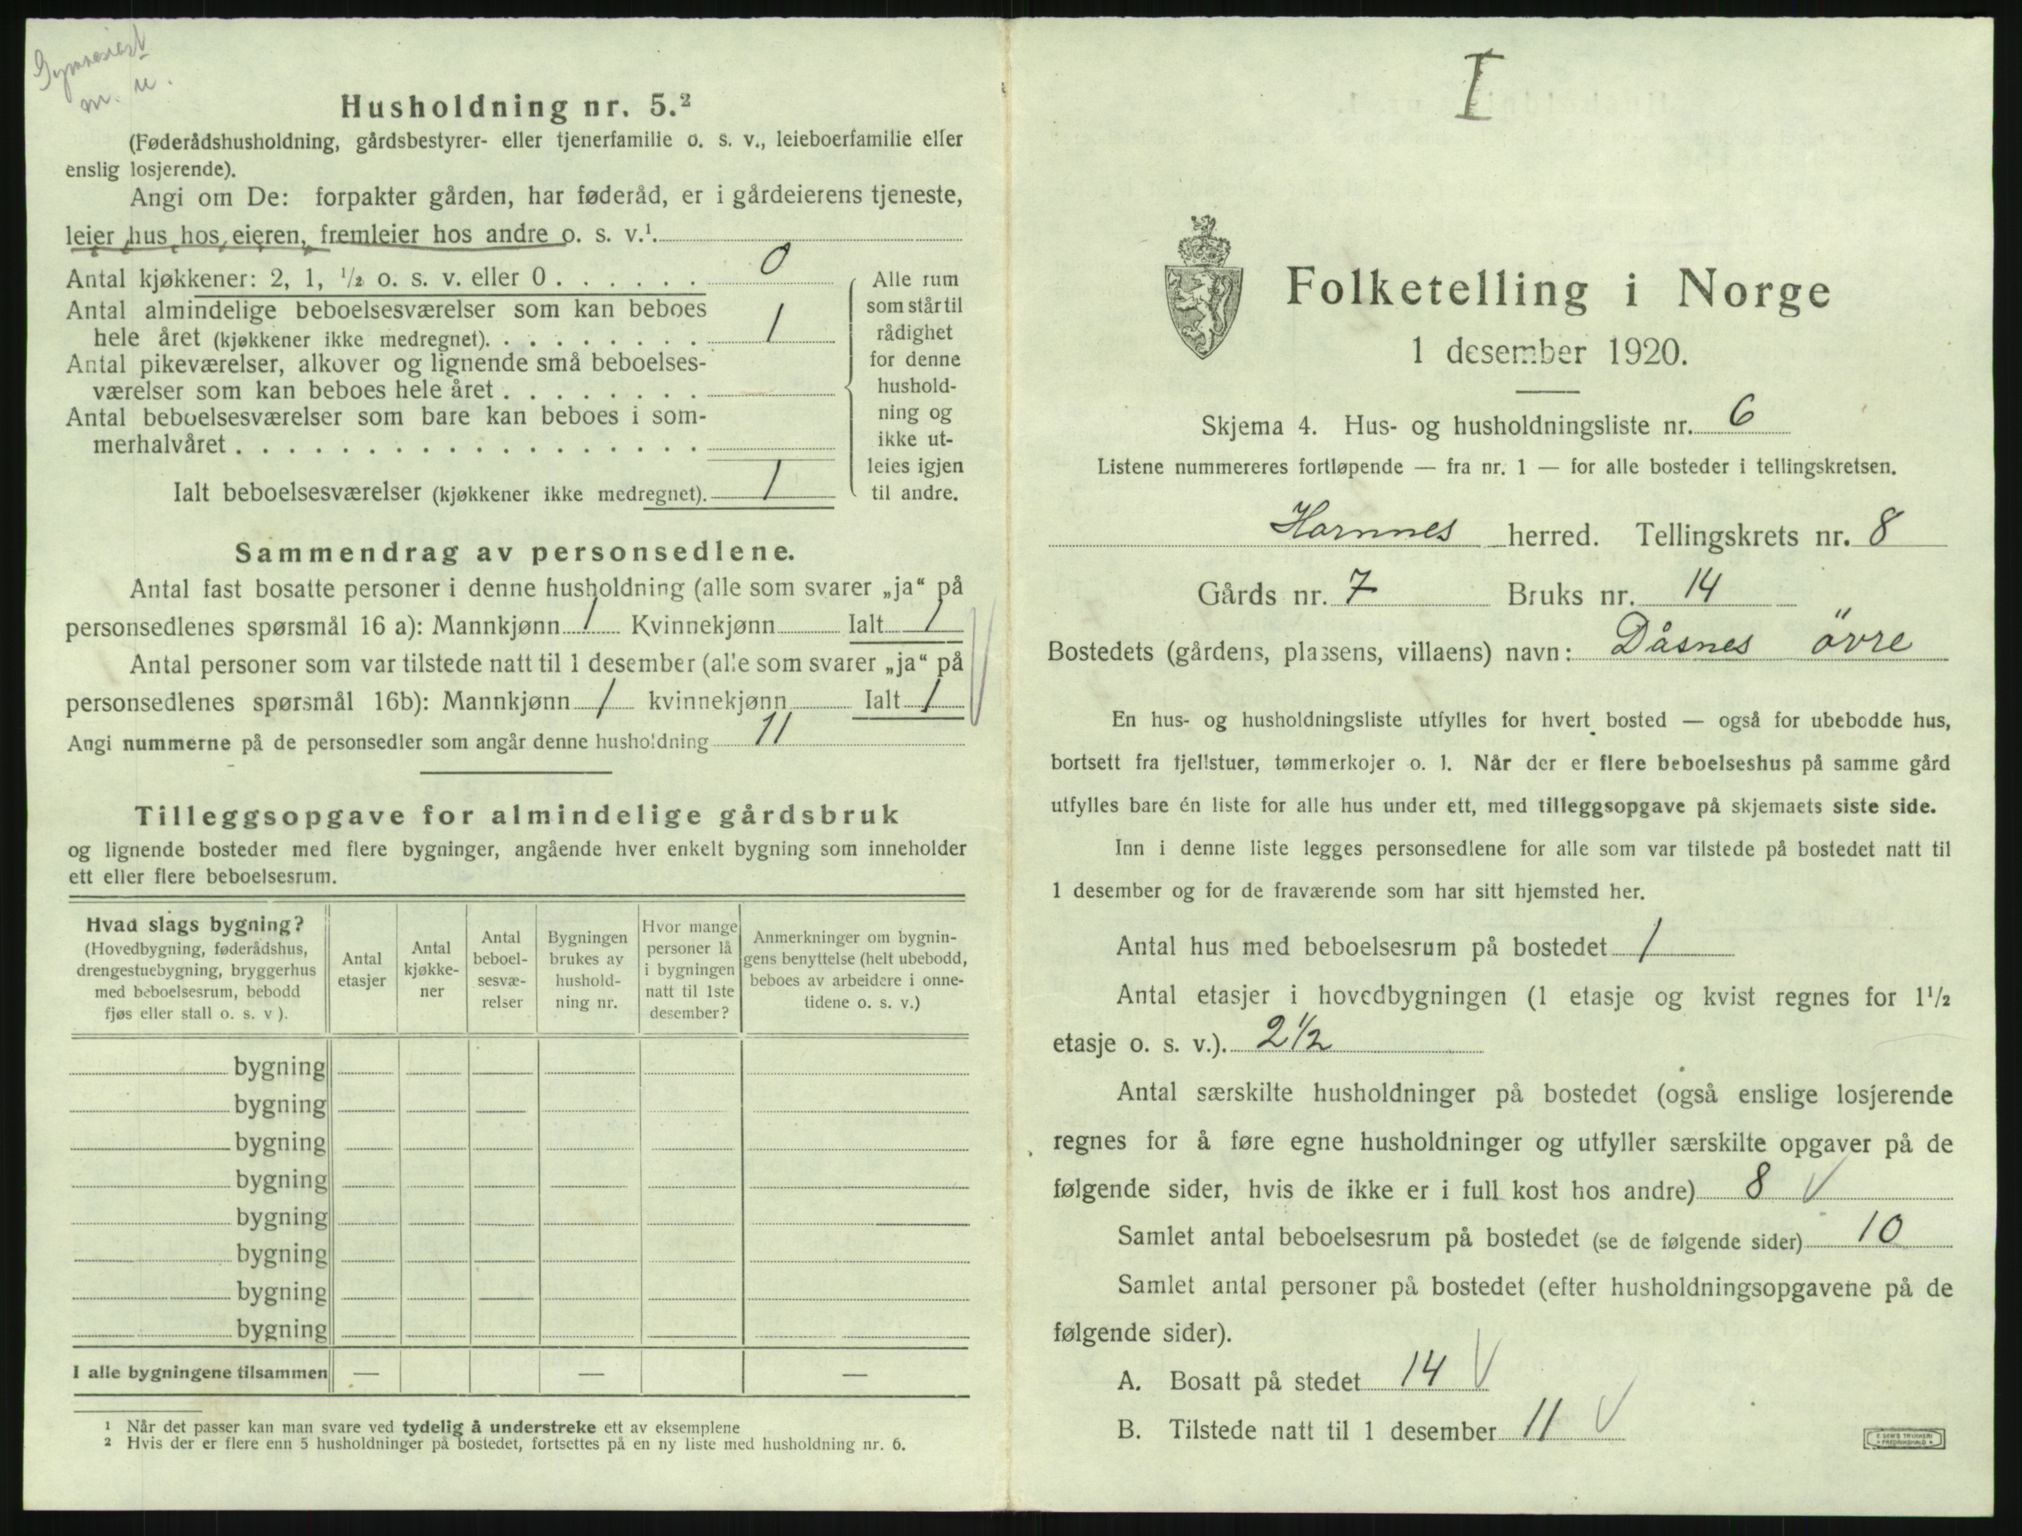 Gymnasiast
m. u.
Husholdning nr. 5.²
(Føderådshusholdning, gårdsbestyrer- eller tjenerfamilie o. s. v., leieboerfamilie eller
enslig losjerende).
Angi om De: forpakter gården, har føderåd, er i gårdeierens tjeneste,
leier hus hos eieren, fremleier hos andre o. s. v.¹.
Antal kjøkkener: 2, 1, ½ o. s. v. eller 0 . . . . . . 0
Antal almindelige beboelsesværelser som kan beboes
hele året (kjøkkener ikke medregnet). . . . . . . . . 1
Antal pikeværelser, alkover og lignende små beboelses-
værelser som kan beboes hele året . . . . . . . .
Antal beboelsesværelser som bare kan beboes i som-
merhalvåret . . . . . . . . . . . . . . . . . .
Ialt beboelsesværelser (kjøkkener ikke medregnet). 1
Alle rum
som står til
rådighet
for denne
hushold-
ning og
ikke ut-
leies igjen
til andre.
Sammendrag av personsedlene.
Antal fast bosatte personer i denne husholdning (alle som svarer „ja“ på
personsedlenes spørsmål 16 a): Mannkjønn 1 Kvinnekjønn Ialt 1
Antal personer som var tilstede natt til 1 desember (alle som svarer „ja“ på
personsedlenes spørsmål 16b): Mannkjønn 1 kvinnekjønn Ialt 1
Angi nummerne på de personsedler som angår denne husholdning 11
Tilleggsopgave for almindelige gårdsbruk
og lignende bosteder med flere bygninger, angående hver enkelt bygning som inneholder
ett eller flere beboelsesrum.
Hvad slags bygning?
(Hovedbygning, føderådshus,
drengestuebygning, bryggerhus
med beboelsesrum, bebodd
fjøs eller stall o. s. v ).
Antal
etasjer
Antal
kjøkke-
ner
Antal
beboel-
sesvæ-
relser
Bygningen
brukes av
hushold-
ning nr.
Hvor mange
personer lå
i bygningen
natt til 1ste
desember?
Anmerkninger om bygnin-
gens benyttelse (helt ubebodd,
beboes av arbeidere i onne-
tidene o. s. v.)
bygning
bygning
bygning
bygning
bygning
bygning
bygning
bygning
I alle bygningene tilsammen — — —
¹ Når det passer kan man svare ved tydelig å understreke ett av eksemplene
² Hvis der er flere enn 5 husholdninger på bostedet, fortsettes på en ny liste med husholdning nr. 6.
I
Folketelling i Norge
1 desember 1920.
Skjema 4. Hus- og husholdningsliste nr. 6
Listene nummereres fortløpende — fra nr. 1 — for alle bosteder i tellingskretsen.
Hornnes herred. Tellingskrets nr. 8
Gårds nr. 7 Bruks nr. 14
Bostedets (gårdens, plassens, villaens) navn: Dåsnes övre
En hus- og husholdningsliste utfylles for hvert bosted — også for ubebodde hus,
bortsett fra fjellstuer, tømmerkojer o. l. Når der er flere beboelseshus på samme gård
utfylles bare én liste for alle hus under ett, med tilleggsopgave på skjemaets siste side.
Inn i denne liste legges personsedlene for alle som var tilstede på bostedet natt til
1 desember og for de fraværende som har sitt hjemsted her.
Antal hus med beboelsesrum på bostedet 1
Antal etasjer i hovedbygningen (1 etasje og kvist regnes for 1½
etasje o. s. v.). 2½
Antal særskilte husholdninger på bostedet (også enslige losjerende
regnes for å føre egne husholdninger og utfyller særskilte opgaver på de
følgende sider, hvis de ikke er i full kost hos andre) 8 V
Samlet antal beboelsesrum på bostedet (se de følgende sider) 10
Samlet antal personer på bostedet (efter husholdningsopgavene på de
følgende sider).
A. Bosatt på stedet 14 V
B. Tilstede natt til 1 desember 11 V